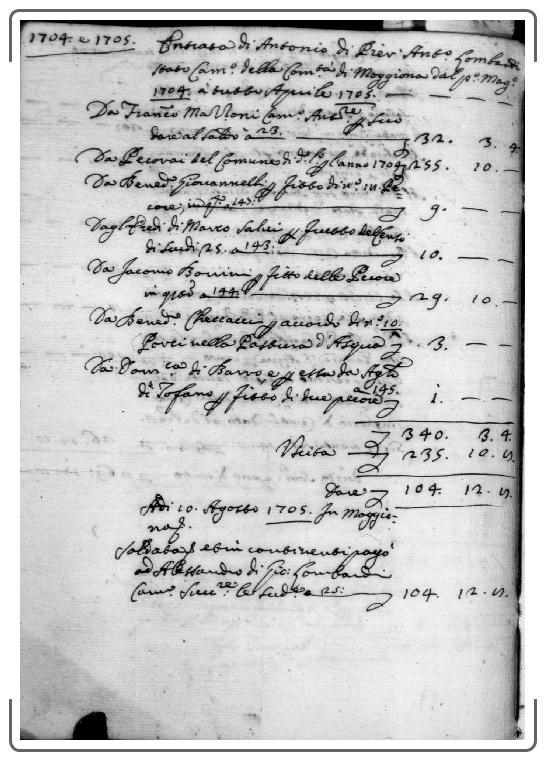 1704. e 1705. Entrata di Antonio di Pier Ant.o Lombardi
stato Cam.o della Com.tà di Moggiona dal p.o Mag.o
1704. a tutto Aprile 1705. — — —
Da Franc.o Cam.o Ant.re p
dare al saldo a 23. — 32. 3. 4.
Da Pecorai del Comune di d.o p l'anno 1704 255. 10. —
Da Bened.o Giovannelli p fitto di n.o Pe-
core in q.o a 143. 9. — —
Dagl'Eredi di Marco Salvi p
di Scudi 25. a 143. — 10. — —
Da Jacomo p fitto delle Pecore
in q.sto a 144. — 29. 10. —
Da Bened.o Checcacci p accordo di n.o 10.
Porci nella Pastura d'Acqua 3. — —
Da Dom.ca di e p essa da Ag.
a 145.
di Tofano p fitto di due pecore 1. — —
340. 3. 4.
Uscita — 235. 10. 11.
Dare — 104. 12. 5.
Adì 10. Agosto 1705. In Moggio-
na
Saldata et in continenti pagò
ad Alessandro di Gio: Lombardi
Cam.o Succ.re le sud.e a 25: — 104. 12. 5.